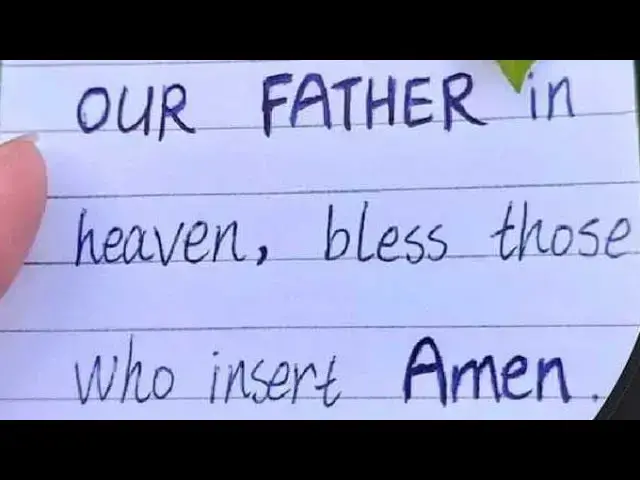 OUR FATHER in
heaven, bless those
who insert Amen.